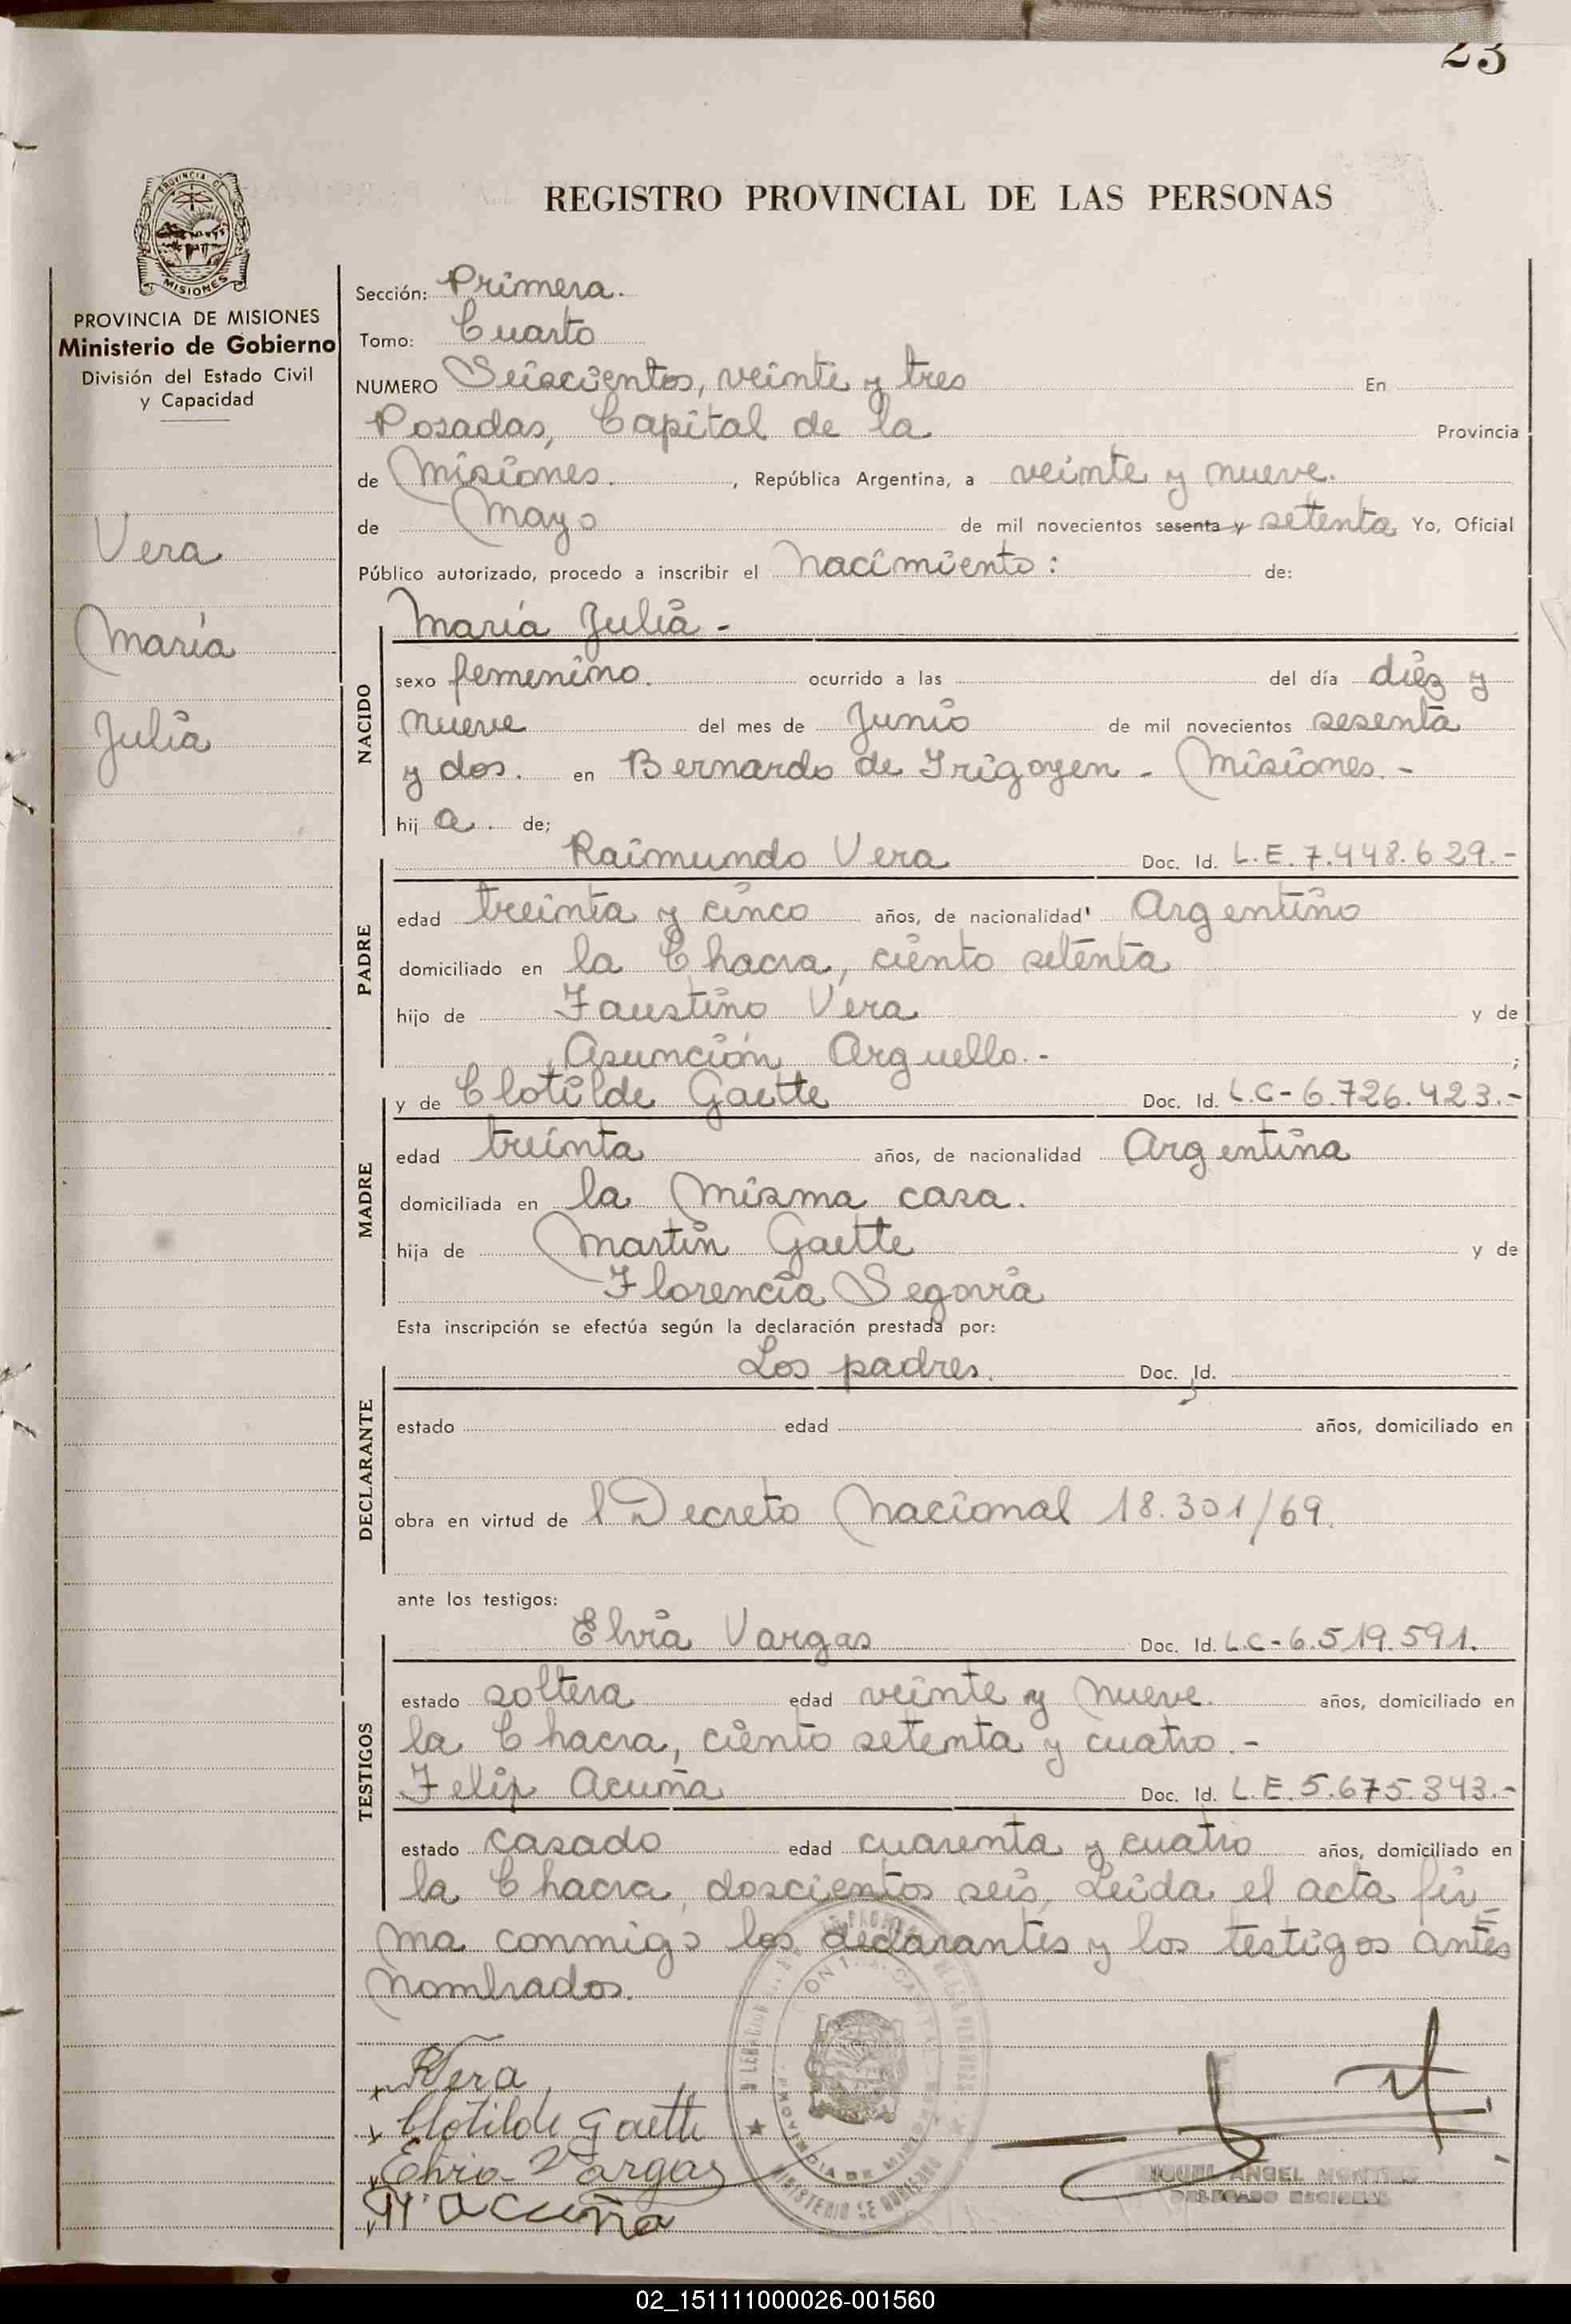 23
REGISTRO PROVINCIAL DE LAS PERSONAS
PROVINCIA DE MISIONES
Ministerio de Gobierno
División del Estado Civil
y Capacidad
Vera
María
Julia
Sección: Primera.
Tomo: Cuarto
NUMERO Seiscientos, veinte y tres En
Posadas, Capital de la Provincia
de Misiones. , República Argentina, a veinte y nueve.
de Mayo de mil novecientos sesenta y setenta Yo, Oficial
Público autorizado, procedo a inscribir el Nacimiento: de:
María Julia -
NACIDO
sexo femenino. ocurrido a las del día diez y
nueve del mes de Junio de mil novecientos sesenta
y dos. en Bernardo de Irigoyen - Misiones. -
hij a. de;
Raimundo Vera Doc. Id. L.E. 7.448.629.-
PADRE
edad treinta y cinco años, de nacionalidad Argentino
domiciliado en la Chacra, ciento setenta
hijo de Faustino Vera y de
Asunción Arguello. - ;
y de Clotilde Gaette Doc. Id. L.C- 6.726.423.-
MADRE
edad treinta años, de nacionalidad Argentina
domiciliada en la misma casa.
hija de Martin Gaette y de
Florencia Segovia
Esta inscripción se efectúa según la declaración prestada por:
Los padres. Doc. Id.
DECLARANTE
estado edad años, domiciliado en
obra en virtud de l Decreto Nacional 18.301/69.
ante los testigos:
Elvia Vargas Doc. Id. L.C- 6.519.591.
TESTIGOS
estado soltera edad veinte y nueve. años, domiciliado en
la Chacra, ciento setenta y cuatro.-
Felix Acuña Doc. Id. L.E. 5.675.343.-
estado casado edad cuarenta y cuatro años, domiciliado en
la Chacra, doscientos seis, Leida el acta fir=
ma conmigo los declarantes y los testigos antes
nombrados.
RVera
Clotilde Gaette
Elvia Vargas
Acuña
PROVINCIA DE MISIONES
MINISTERIO DE GOBIERNO
MIGUEL ANGEL
DELEGADO
02_151111000026-001560